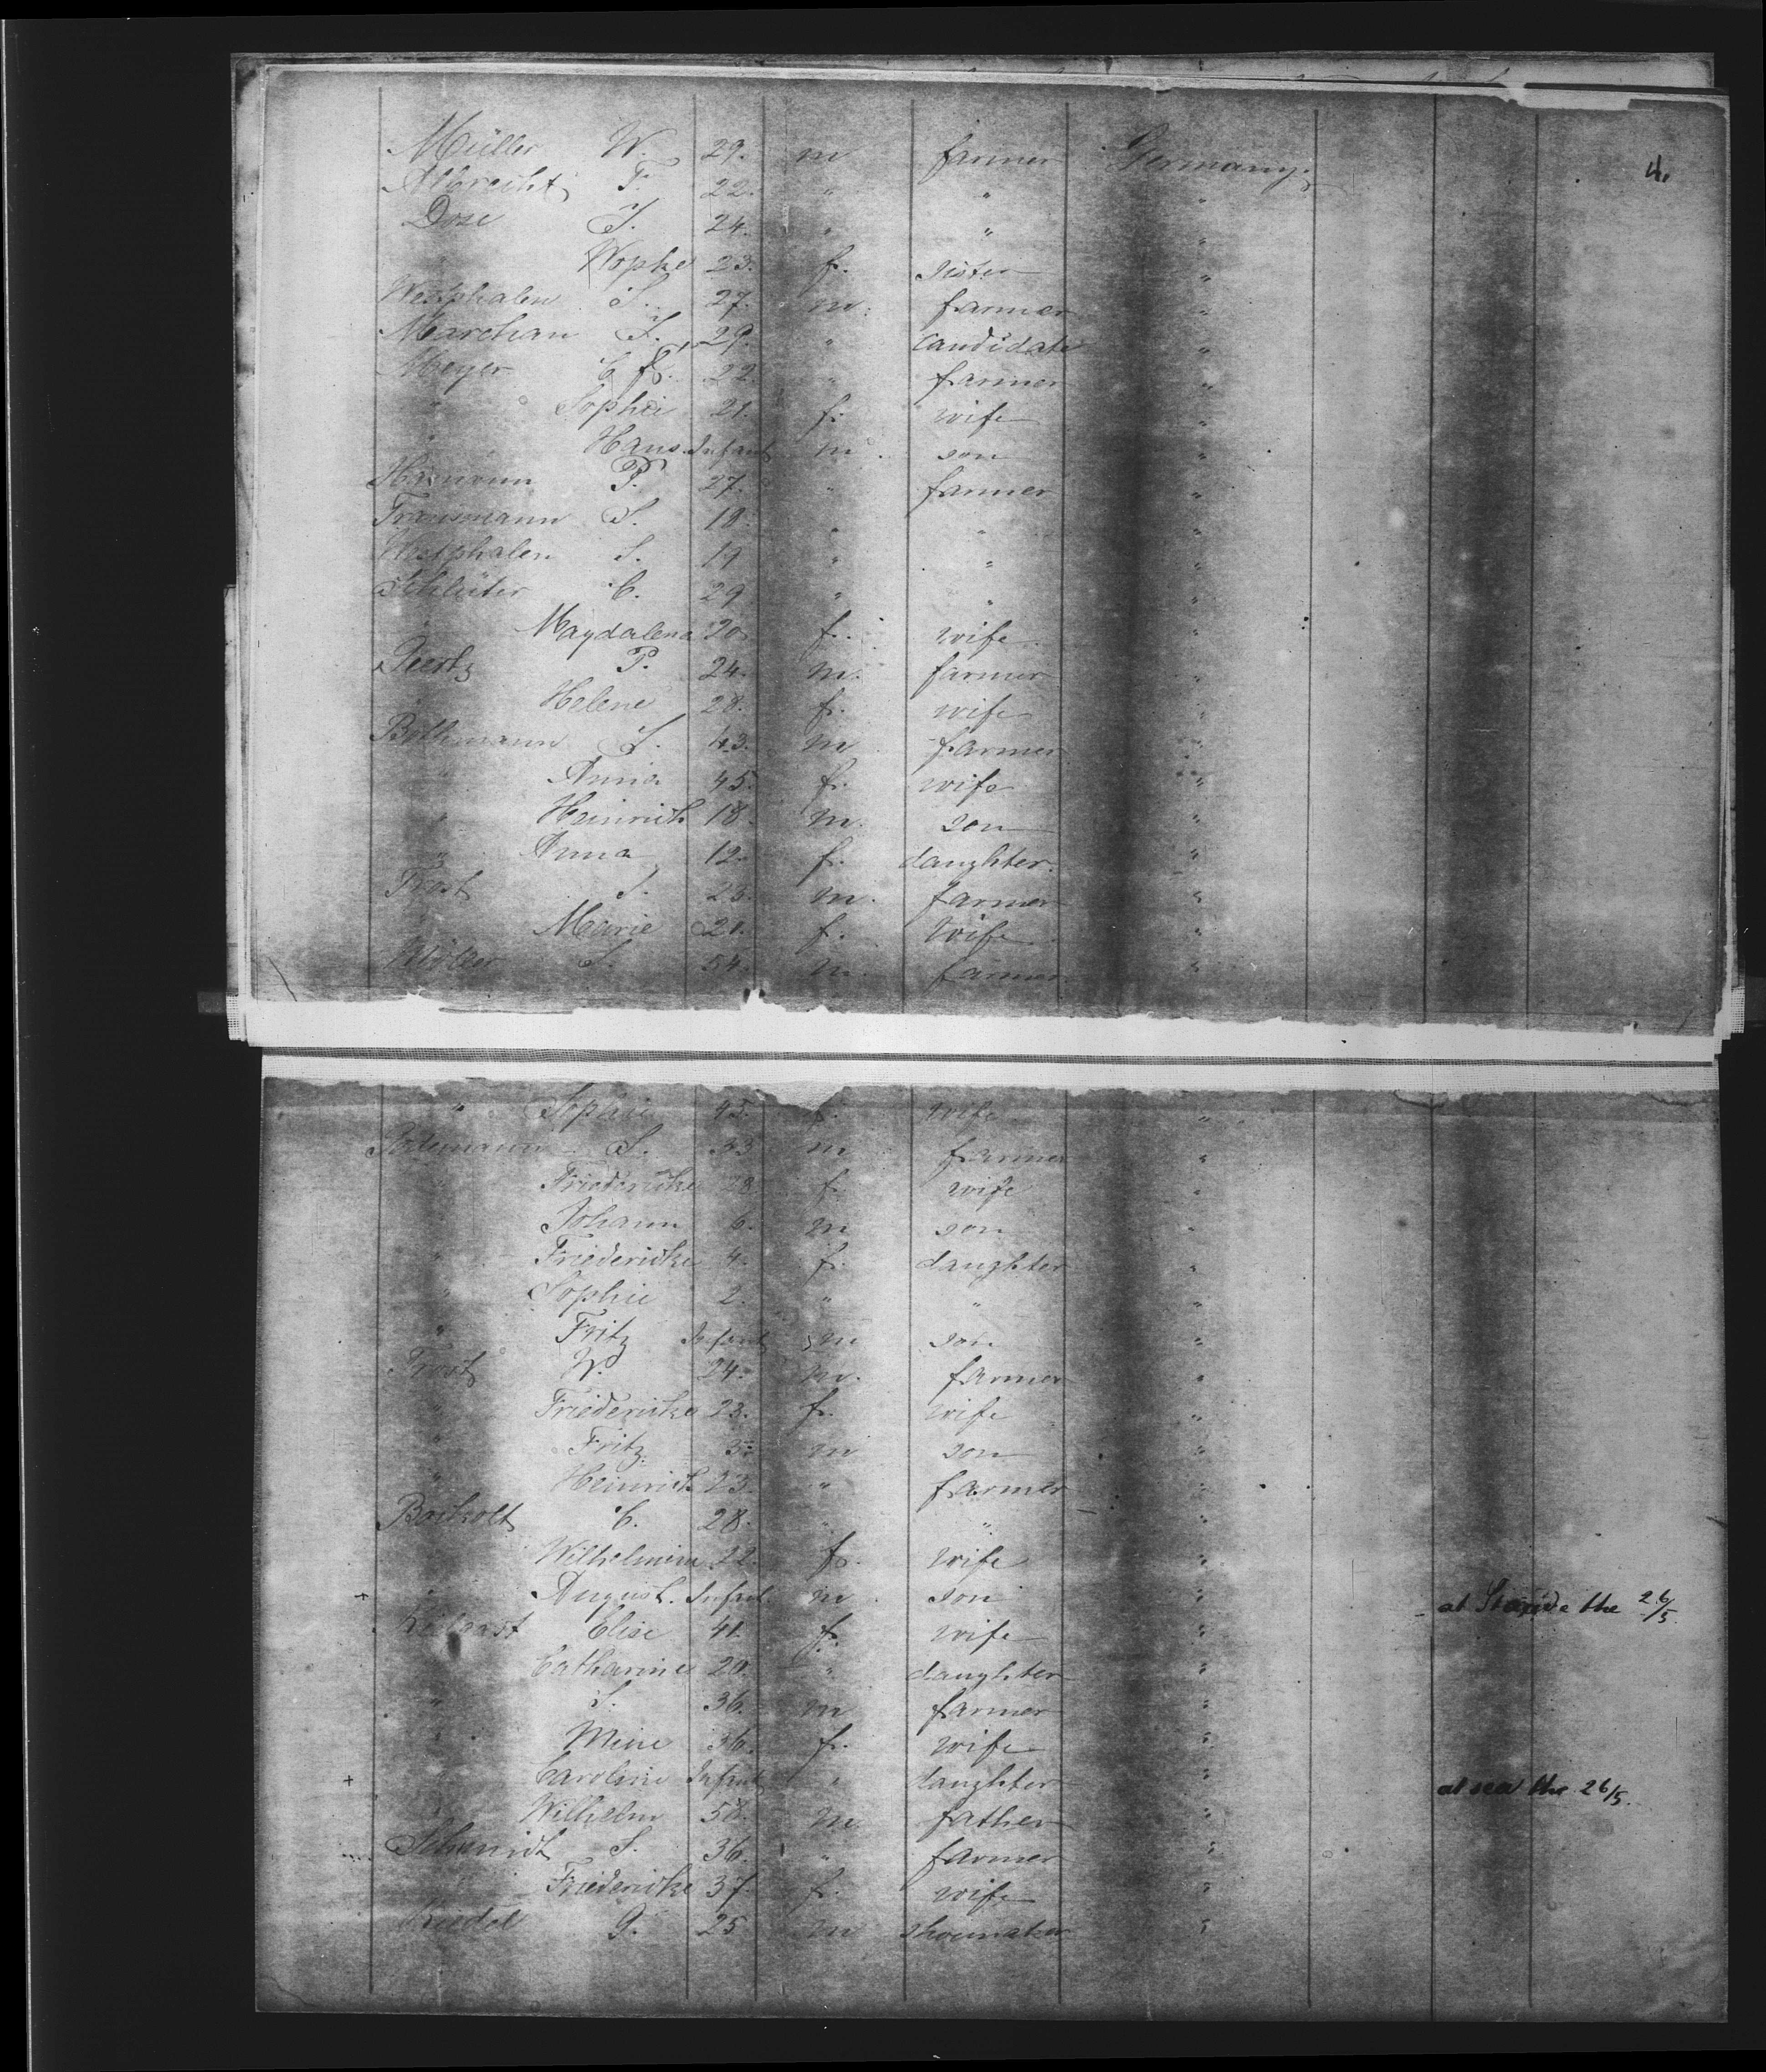 4.
Müller W. 29. m farmer Germany.
Albrecht F. 22. " " "
Dose J. 24. " " "
" 23. f. sister "
Westphalen J. 27. m. farmer "
Marchan J. 29. " candidate "
Meyer C. 22. " farmer "
" Sophie 21. f. wife "
" Hans. Infant m. son "
P. 27. " farmer "
Transmann J. 18. " " "
Westphalen J. 19 " " "
Schlüter C. 29 " " "
" Magdalena 20. f. wife "
P. 24. m. farmer "
" Helene 28. f. wife "
J. 43. m farmer "
" Anna 45. f. wife "
" Heinrich 18. m. son "
" Anna 12. f. daughter. "
Trost J. 23. m. farmer "
" Marie 21. f. wife "
Möller J. 54. m. farmer "
" Sophie 45. f. wife "
J. 33 m farmer "
" Friedericke 28 f. wife "
" Johann 6. m son "
" Friedericke 4. f. daughter "
" Sophie 2. " " "
" Fritz Infant m son "
Trost W. 24. m. farmer "
" Friedericke 23. f. wife "
" Fritz 3. m son "
" Heinrich 23. " farmer "
Bockolt C. 28. " " "
" Wilhelmine 22. f. wife "
+ " August. Infant. m son " at the 26/5.
Elise 41. f. wife "
" Catharine 20. " daughter "
" J. 36. m farmer "
" Mine 36. f. wife "
+ " Caroline Infant " daughter " at sea the 26/5.
" Wilhelm 58. m father "
Schmidt J. 36. " farmer "
" Friedericke 37. f. wife "
Riedel G. 25 m shoemaker "